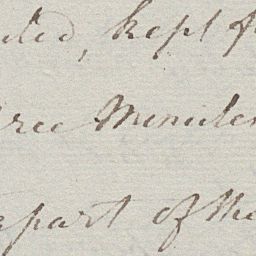 ted, kept f
ree Minutes
apart of the